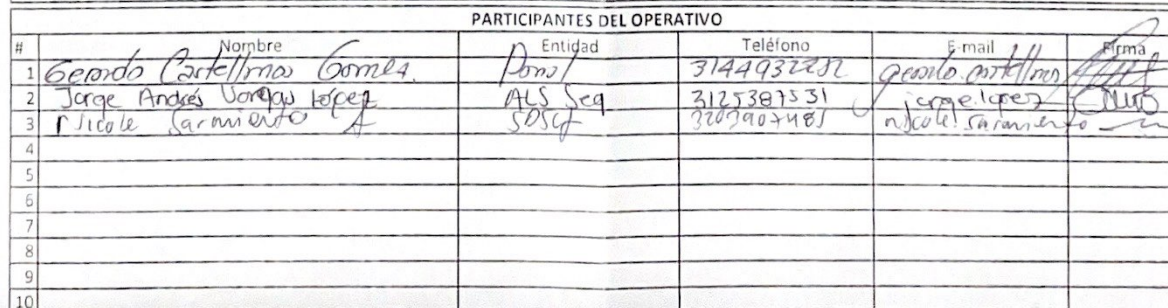 PARTICIPANTES DEL OPERATIVO
# Nombre Entidad Teléfono E-mail Firma
1 Gerardo Castellanos Gomez. Ponal 3144932232 gerardo.castellanos
2 Jorge Andrés Vargas López ALS Seg 3125387531 jorge.lopez
3 Nicole Sarmiento A SDSCJ 3203907485 nicole.sarmiento
4
5
6
7
8
9
10